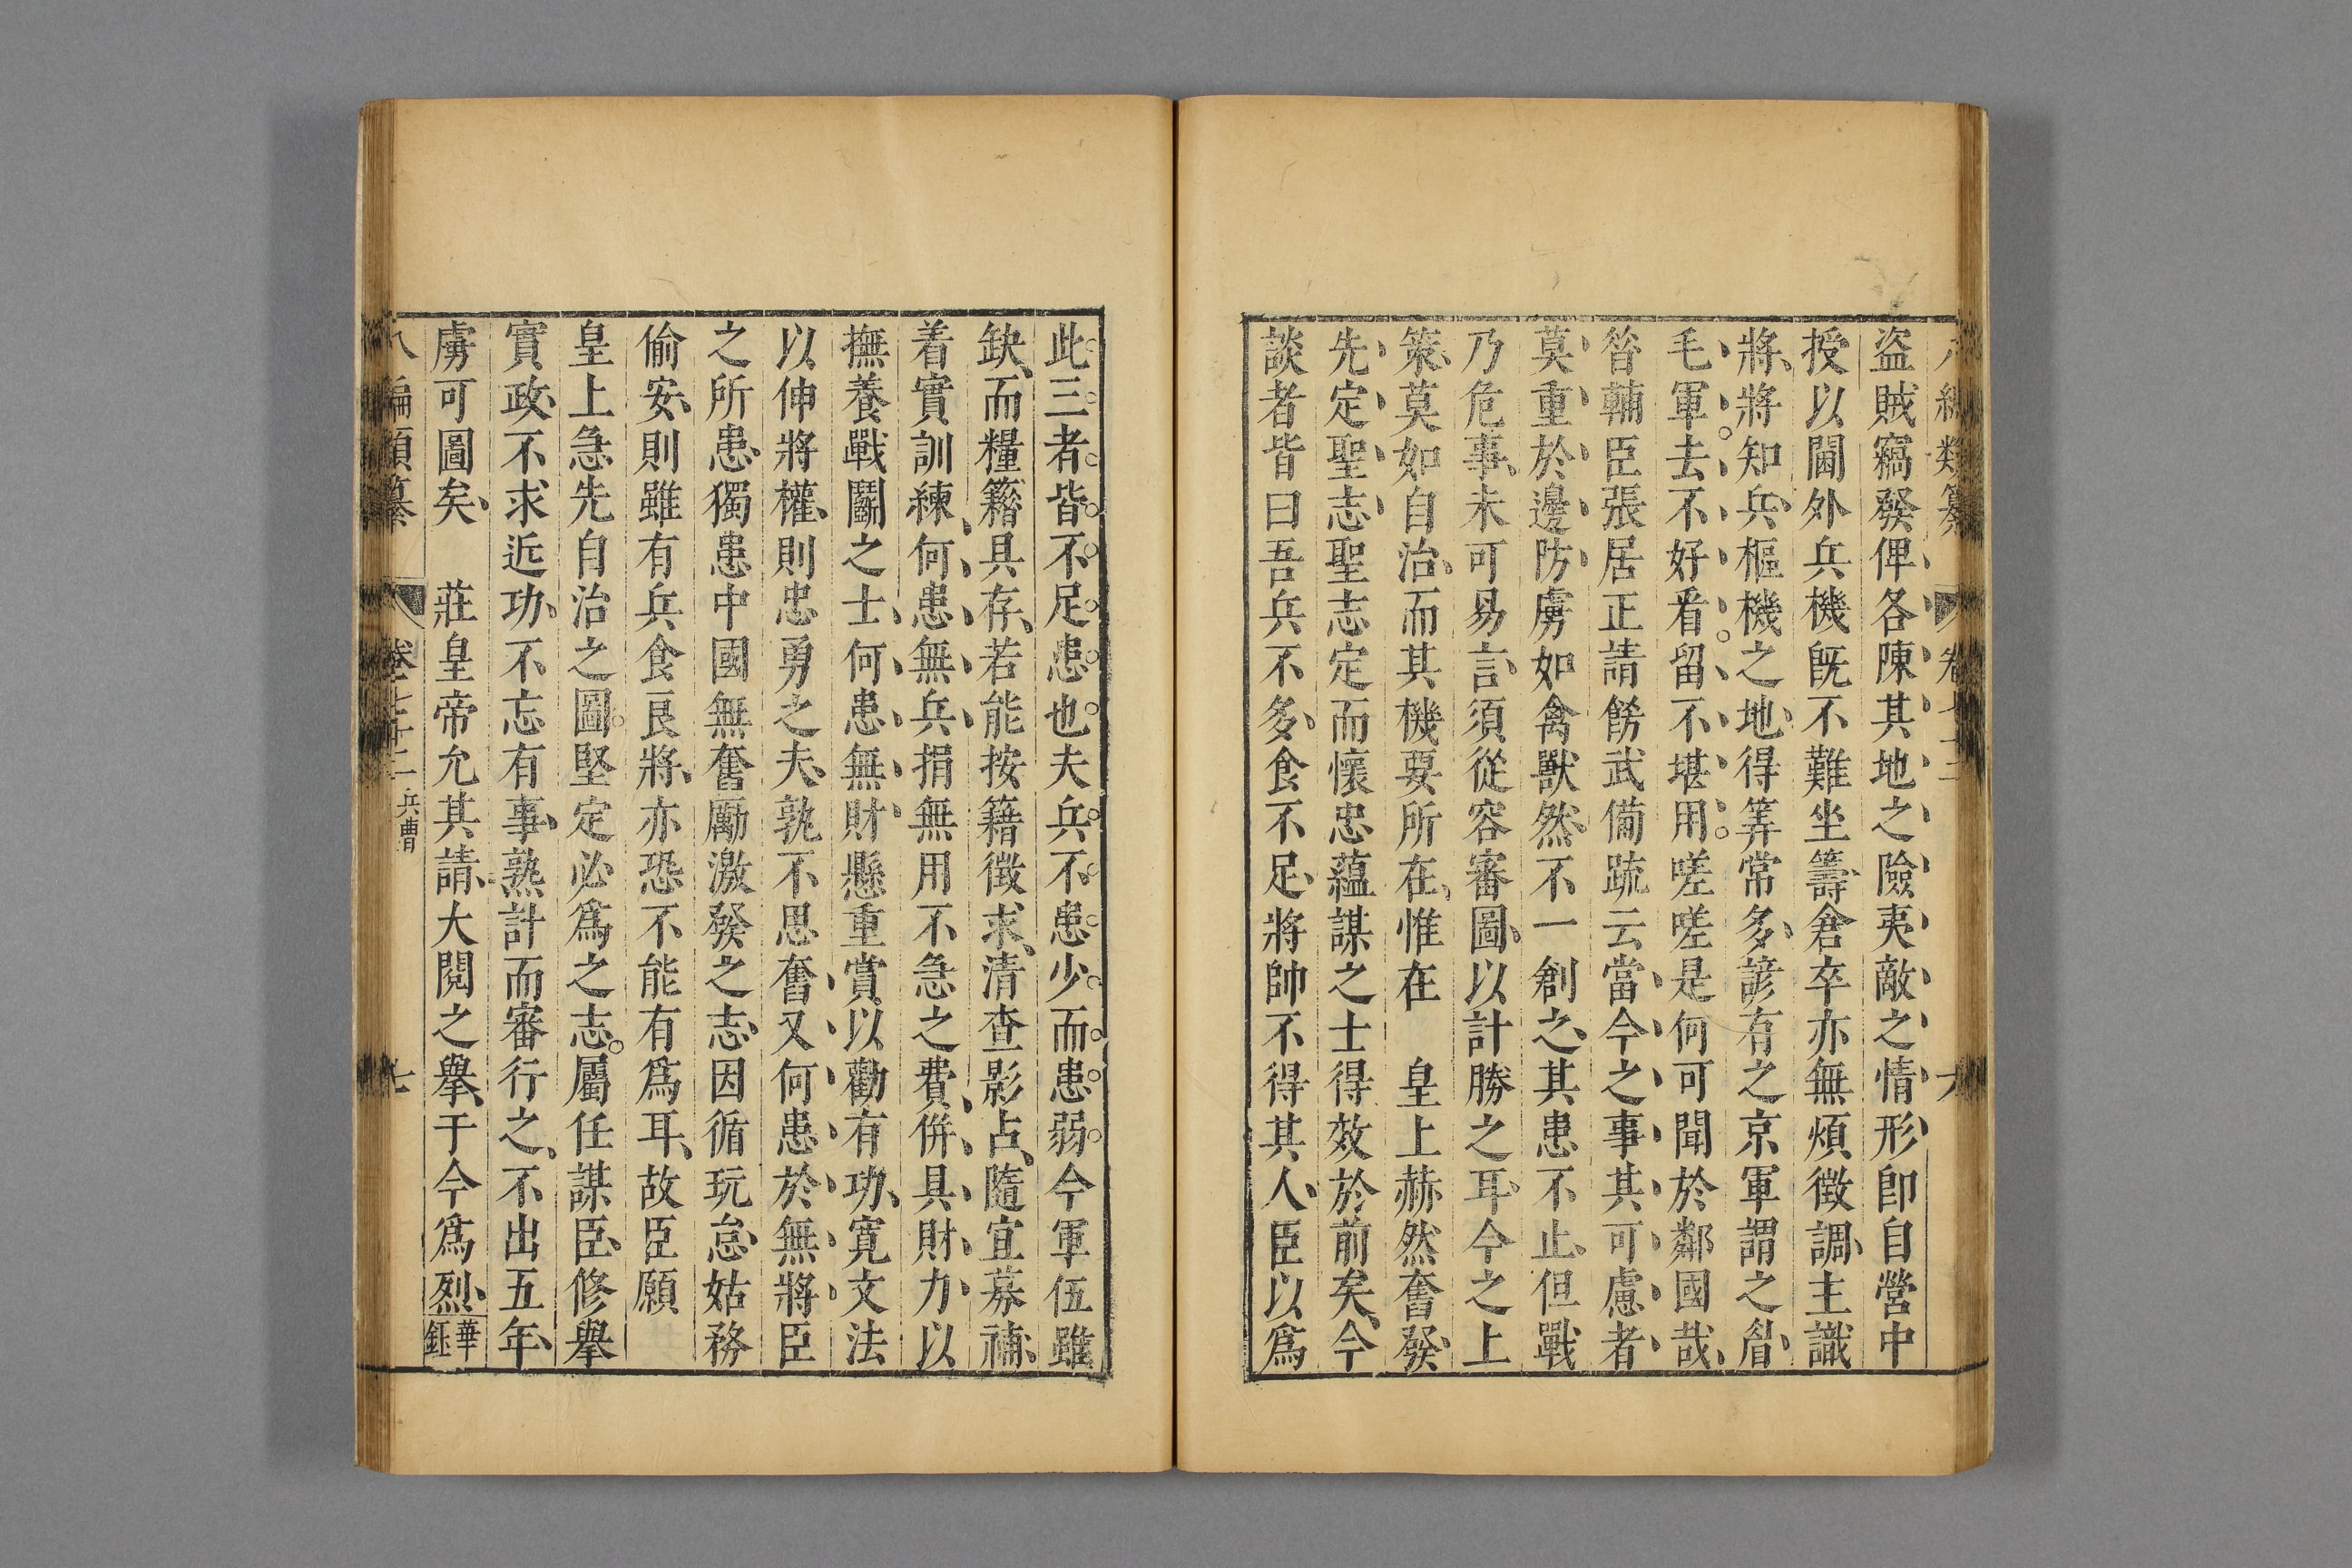 八編類纂 卷七十二 六
盜賊竊發俾各陳其地之險夷敵之情形卽自營中
授以閫外兵機旣不難坐籌倉卒亦無煩徵調主識
將將知兵樞機之地得筭常多諺有之京軍謂之眉
毛軍去不好看留不堪用嗟嗟是何可聞於鄰國哉
昝輔臣張居正請餝武備疏云當今之事其可慮者
莫重於邊防虜如禽獸然不一創之其患不止但戰
乃危事未可易言須從容審圖以計勝之耳今之上
策莫如自治而其機要所在惟在 皇上赫然奮發
先定聖志聖志定而懷忠蘊謀之士得效於前矣今
談者皆曰吾兵不多食不足將帥不得其人臣以爲
此三者皆不足患也夫兵不患少而患弱今軍伍雖
缺而糧籍具存若能按籍徵求清查影占隨宜募補
着實訓練何患無兵捐無用不急之費併具財力以
撫養戰鬭之士何患無財懸重賞以勸有功寬文法
以伸將權則忠勇之夫孰不思奮又何患於無將臣
之所患獨患中國無奮勵激發之志因循玩怠姑務
偷安則雖有兵食良將亦恐不能有爲耳故臣願
皇上急先自治之圖堅定必爲之志屬任謀臣修擧
實政不求近功不忘有事熟計而審行之不出五年
虜可圖矣 莊皇帝允其請大閱之擧于今爲烈 華鈺
八編類纂 卷七十二 兵曹 七